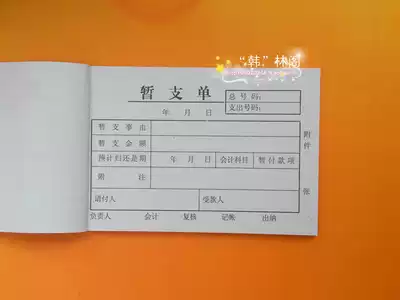 “韩”林阁
暂支单
总号码:
支出号码:
年 月 日
暂支事由
暂支金额
预计归还是期 年 月 日 会计科目 暂付款项
附注
请付人 受款人
负责人 会计 复核 记帐 出纳
附件 张